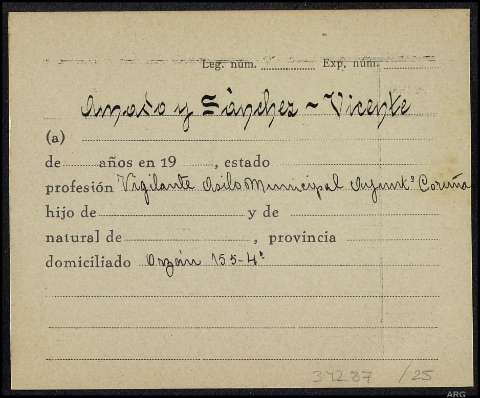 Leg. núm. Exp. núm.
Amado y Sánchez - Vicente
(a)
de años en 19 , estado
profesión Vigilante Asilo Municipal Ayunt° Coruña
hijo de y de
natural de , provincia
domiciliado Orzán 155-4°
34287 /25
ARG